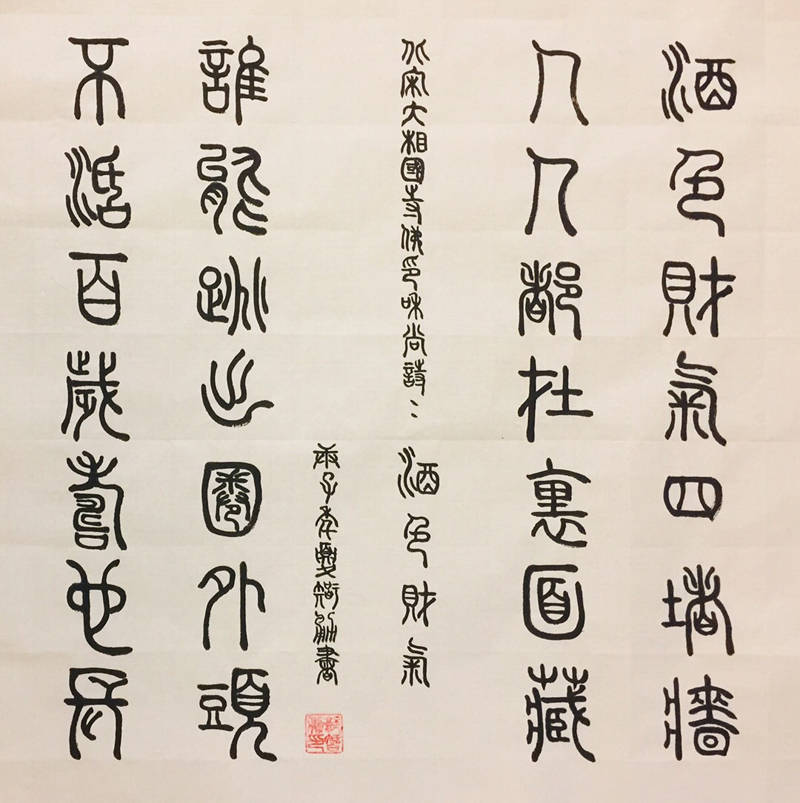 酒色財氣四堵牆
人人都在裏面藏
北宋大相國寺佛印和尚詩：酒色財氣
庚子年夏書
誰能跳出圈外頭
不活百歲壽也長